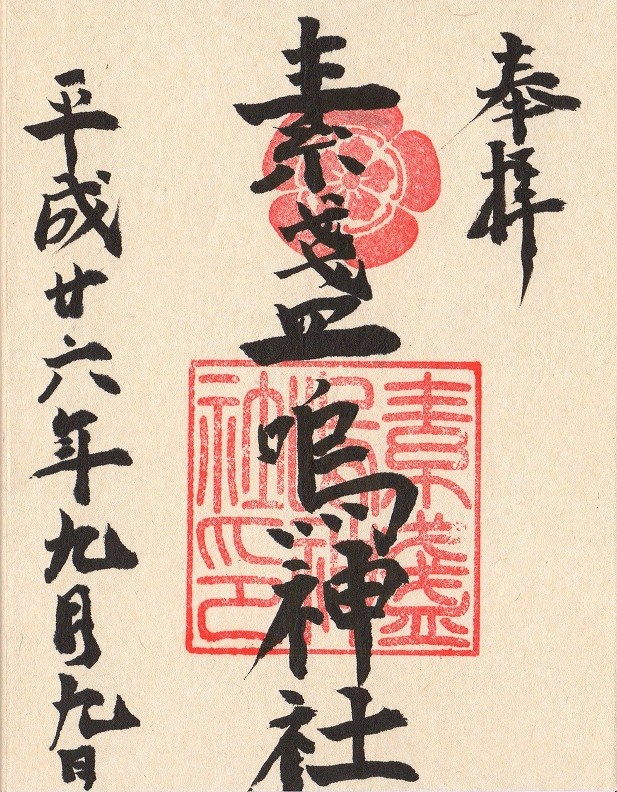 奉拝
素盞嗚神社
素盞
嗚神
社印
平成廿六年九月九日